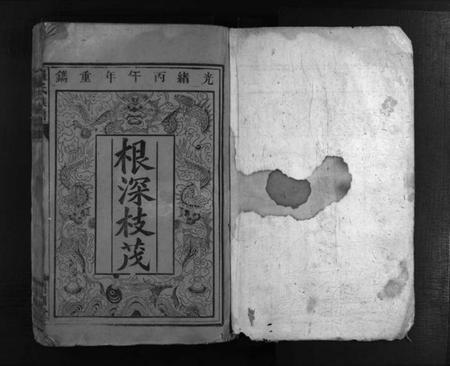 光緒丙午年重鐫
根深枝茂